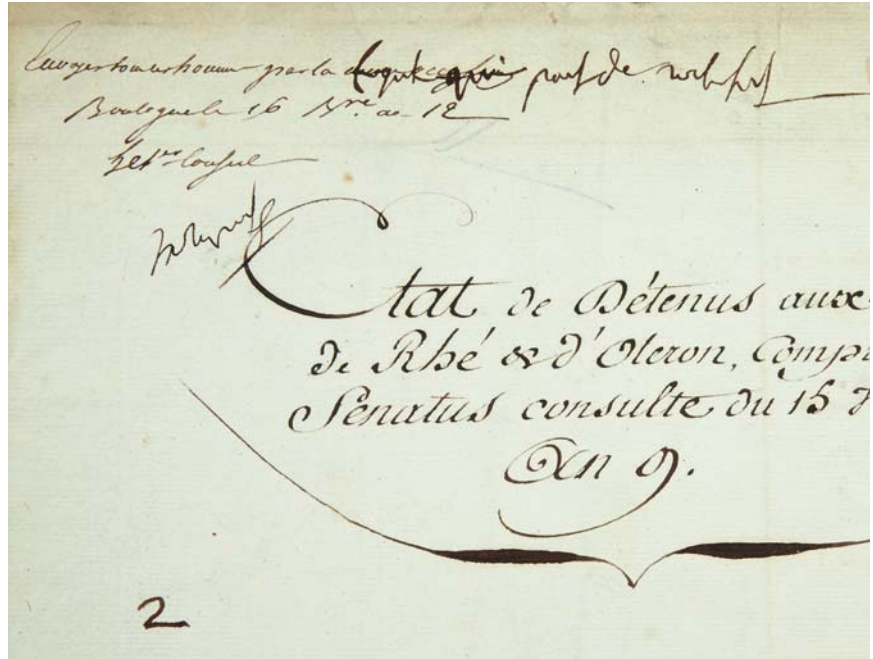 Envoyer tous ces hommes par la port de rochefort
Boulogne le 16 Bre. an 12
Le 1er Consul
Etat de Détenus aux
de Rhé & d'Oleron, Compri
Sénatus consulte du 15
An 9.
2